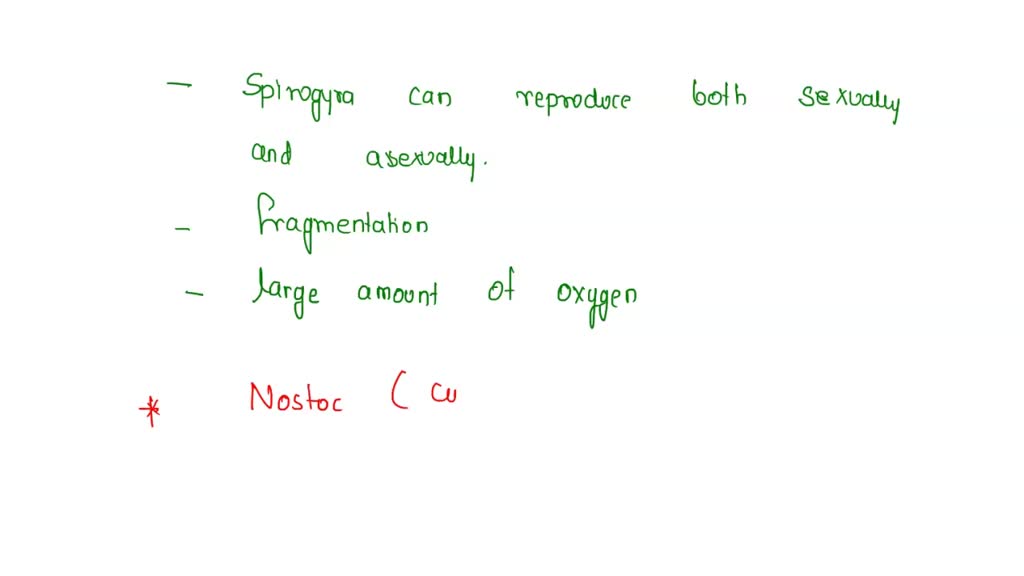 - Spirogyra can reproduce both sexually
and asexually.
- fragmentation
- large amount of oxygen
* Nostoc (